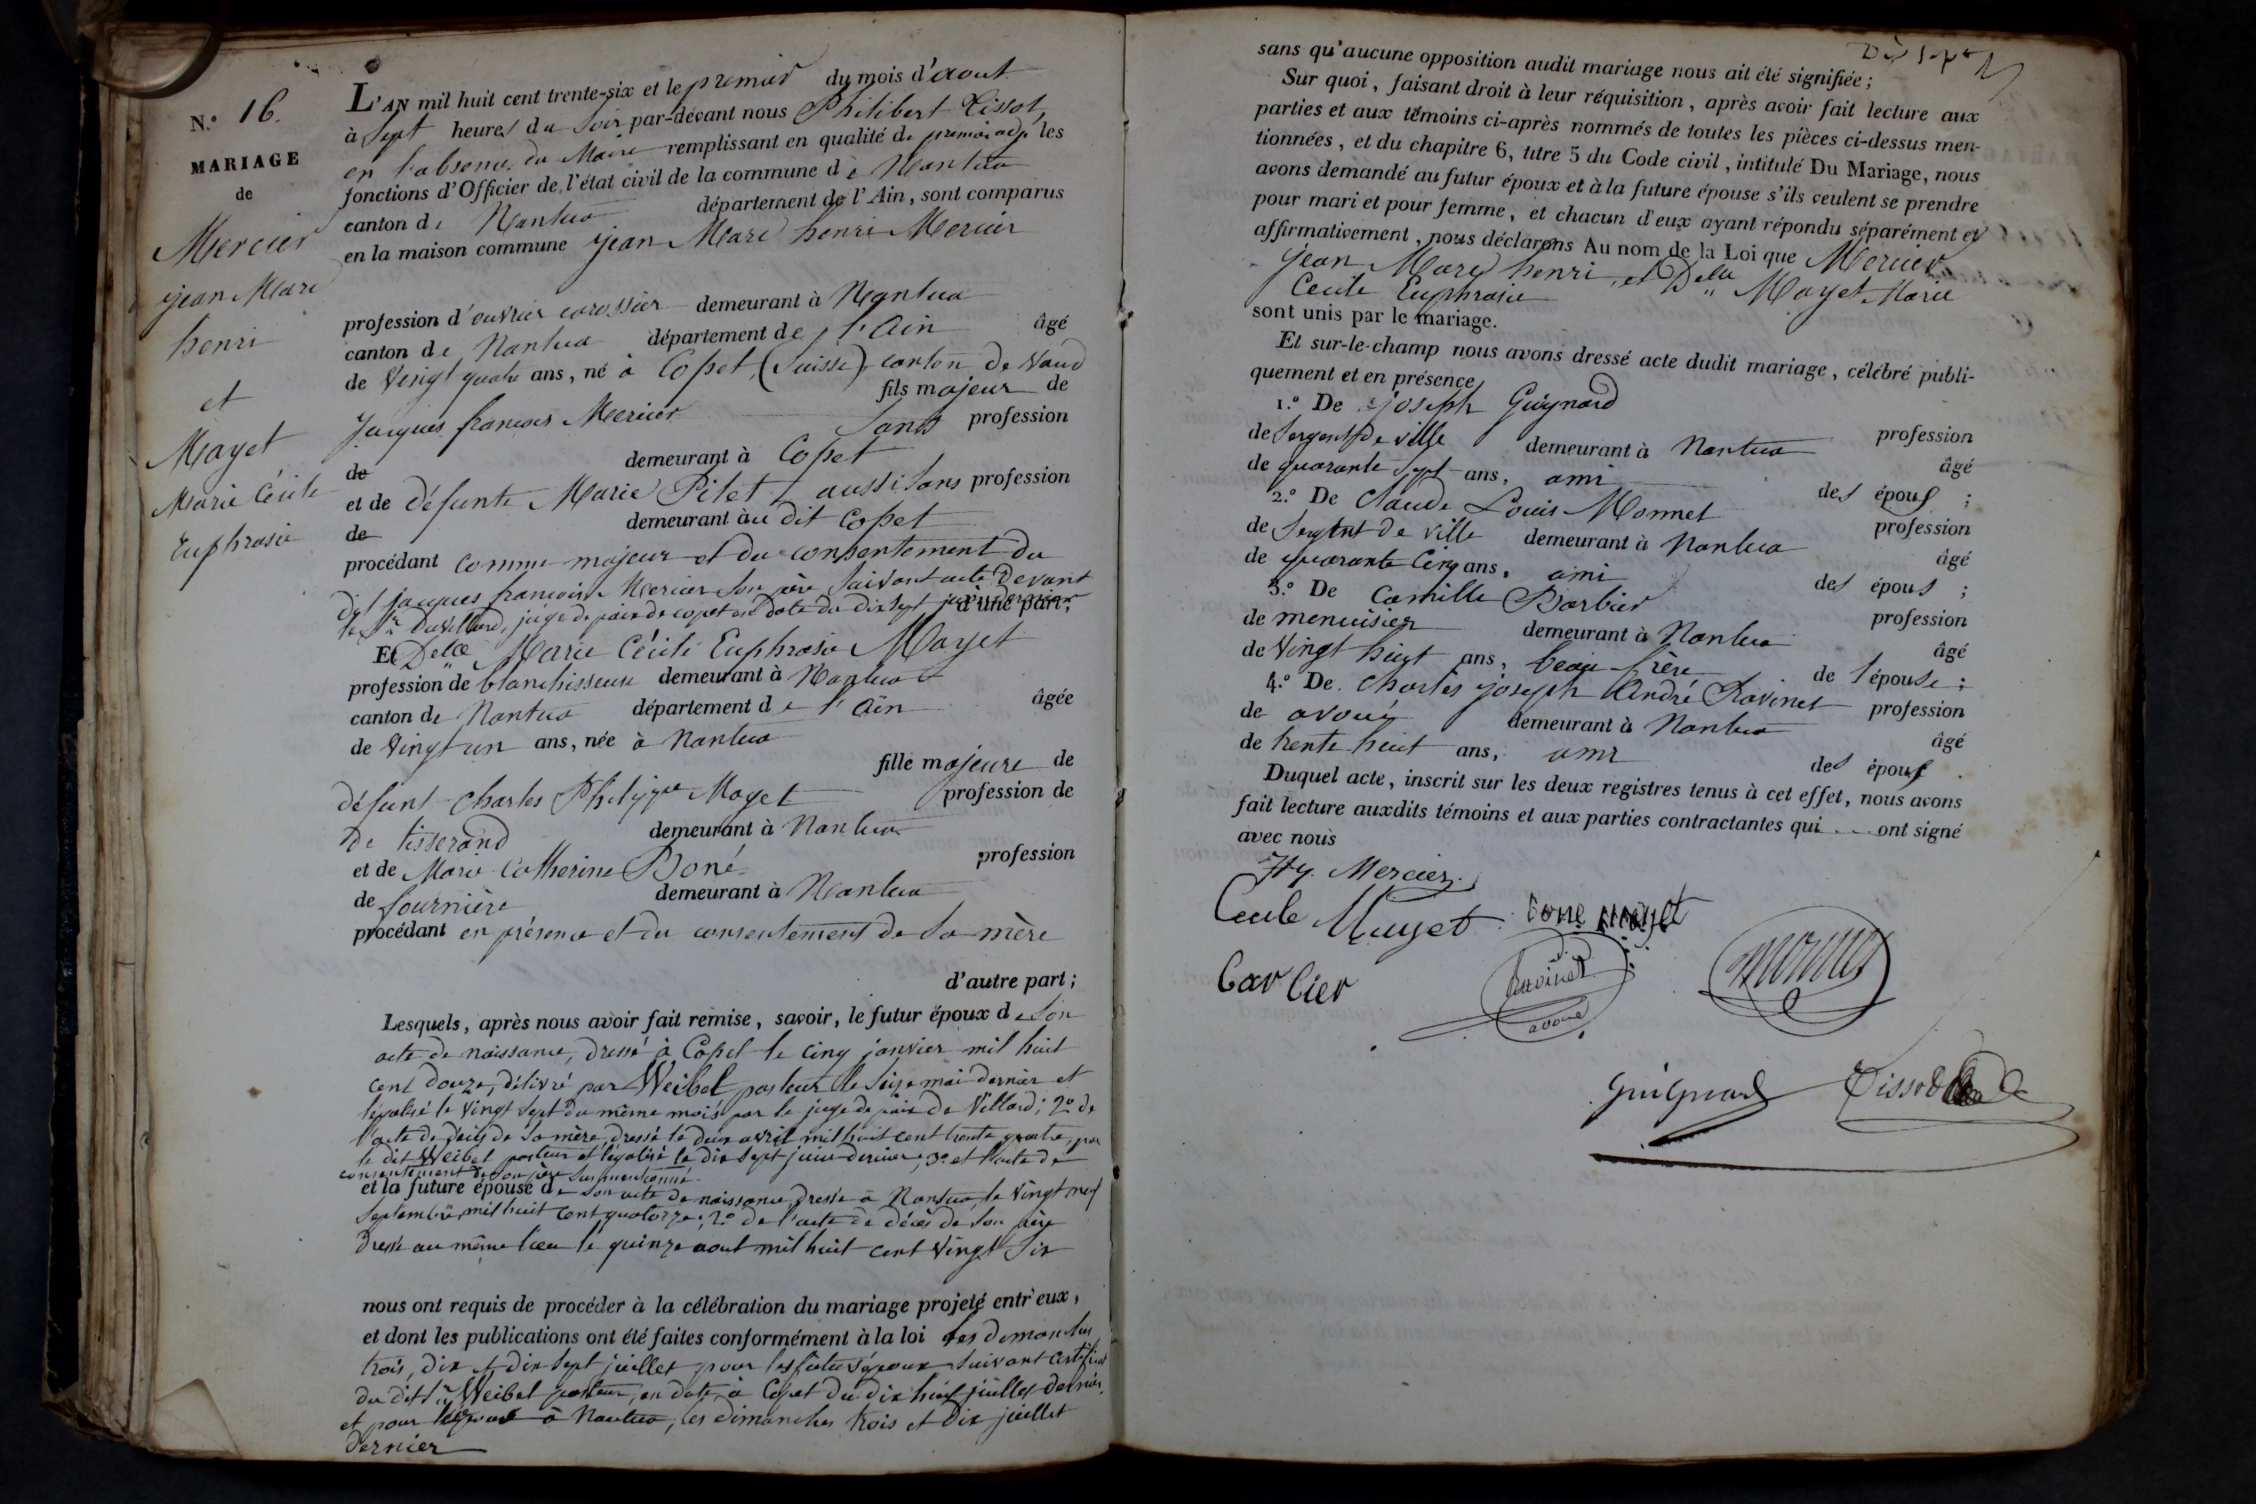 N.o 16.
MARIAGE
de
Mercier
jean Marc
henri
et
Mayet
Marie Cécile
Euphrasie
L'AN mil huit cent trente-six et le premier du mois d'aout
à sept heures du soir par-dévant nous Philibert Tissot,
en l'absence du Maire remplissant en qualité de premier adjt les
fonctions d'Officier de l'état civil de la commune de Nantua
canton de Nantua département de l'Ain, sont comparus
en la maison commune jean Marc henri Mercier
profession d'ouvrier carossier demeurant à Nantua
canton de Nantua département de l'Ain âgé
de Vingt quatre ans, né à Copet, (Suisse) canton de Vaud
fils majeur de
Jacques francois Mercier sans profession
de demeurant à Copet
et de défunte Marie Pilet, aussi sans profession
de demeurant au dit Copet
procédant comme majeur et du consentement du
dit jacques francois Mercier son père suivant acte devant
le Sr Duvillard, juge de paix de copet en date du dix sept juin dernier d'une part;
Et Delle Marie Cécile Euphrasie Mayet
profession de blanchisseuse demeurant à Nantua
canton de Nantua département de l'Ain âgée
de Vingt un ans, née à Nantua
fille majeure de
défunt Charles Philippe Mayet profession de
de tisserand demeurant à Nantua
et de Marie Catherine Boné profession
de fournière demeurant à Nantua
procédant en présence et du consentement de sa mère
d'autre part;
Lesquels, après nous avoir fait remise, savoir, le futur époux de son
acte de naissance, dressé à Copet le cinq janvier mil huit
cent douze, délivré par Weibel pasteur le seize mai dernier et
légalisé le vingt sept du même mois par le juge de paix de Villard; 2o de
l'acte de décès de sa mère, dressé le deux avril mil huit cent trente quatre, par
le dit Weibel pasteur et légalisé le dix sept juin dernier, 3o et l'acte de
consentement de son père susmentionné.
et la future épouse de son acte de naissance, dressé à Nantua, le vingt neuf
septembre mil huit cent quatorze; 2o de l'acte de décès de son père
dressé au même lieu le quinze aout mil huit cent vingt six
nous ont requis de procéder à la célébration du mariage projeté entr'eux,
et dont les publications ont été faites conformément à la loi les dimanches
trois, dix et dix sept juillet pour les futurs époux suivant certificat
du dit Sr Weibel pasteur, en date à Copet du dix huit juillet dernier,
et pour à Nantua, les dimanches trois et dix juillet
dernier
sans qu'aucune opposition audit mariage nous ait été signifiée;
Sur quoi, faisant droit à leur réquisition, après avoir fait lecture aux
parties et aux témoins ci-après nommés de toutes les pièces ci-dessus men-
tionnées, et du chapitre 6, titre 5 du Code civil, intitulé Du Mariage, nous
avons demandé au futur époux et à la future épouse s'ils veulent se prendre
pour mari et pour femme, et chacun d'eux ayant répondu séparément et
affirmativement, nous déclarons Au nom de la Loi que Mercier
jean Marc henri, et Delle Mayet Marie
Cecile Euphrasie
sont unis par le mariage.
Et sur-le-champ nous avons dressé acte dudit mariage, célébré publi-
quement et en présence
1.o De joseph Guignard profession
de sergent de ville demeurant à Nantua âgé
de quarante sept ans, ami des épous ;
2.o De Claude Louis Monnet profession
de sergent de ville demeurant à Nantua âgé
de quarante cinq ans, ami des épous ;
3.o De Camille Barbier profession
de menuisier demeurant à Nantua âgé
de Vingt huit ans, beau frère de l'épouse ;
4.o De Charles joseph André Ravinet profession
de avoué demeurant à Nantua âgé
de trente huit ans, ami des épous .
Duquel acte, inscrit sur les deux registres tenus à cet effet, nous avons
fait lecture auxdits témoins et aux parties contractantes qui ont signé
avec nous
Hy. Mercier.
Cecile Mayet Bone mayet
Barbier Ravinet avoué Monnet
Guignard Tissot